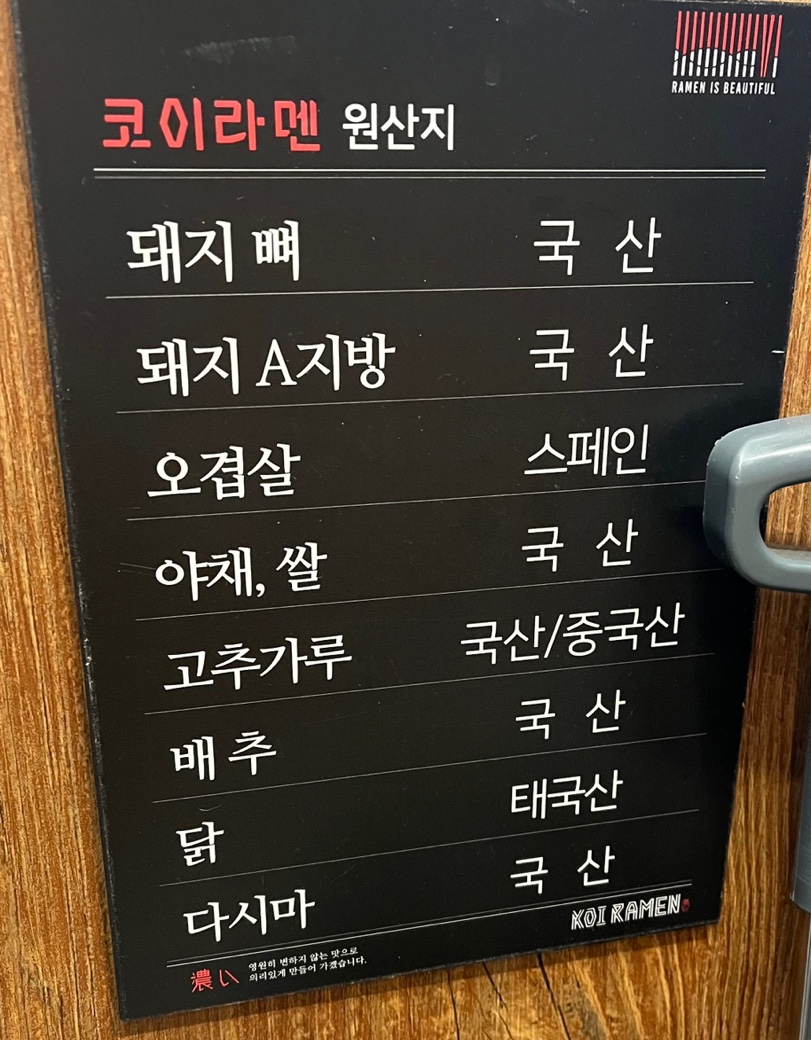 RAMEN IS BEAUTIFUL
코이라멘 원산지
돼지 뼈 국 산
돼지 A지방 국 산
오겹살 스페인
야채, 쌀 국 산
고추가루 국산/중국산
배 추 국 산
닭 태국산
다시마 국 산
KOI RAMEN
濃い 영원히 변하지 않는 맛으로
의리있게 만들어 가겠습니다.